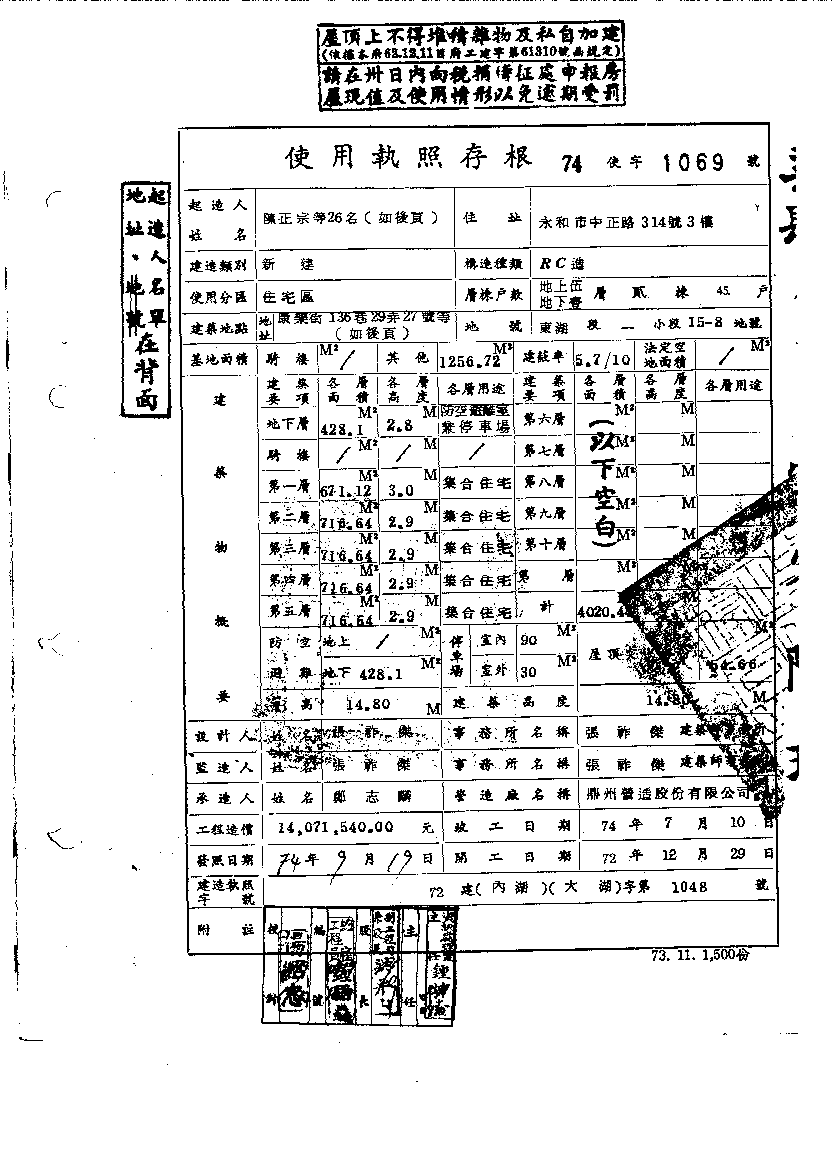 屋頂上不得堆積雜物及私自加建
(依據本府63.12.11首府工建字第61310號函規定)
請在卅日內向稅捐稽征處申報房
屋現值及使用情形以免逾期受罰
起造人名單
地址、地號在背面
使用執照存根 74 使字 1069 號
起造人姓名 陳正宗等26名(如後頁) 住址 永和市中正路314號3樓
建造類別 新建 構造種類 RC造
使用分區 住宅區 層棟戶數 地上伍 地下壹 層 貳 棟 45 戶
建築地點 地址 康樂街136巷29弄27號等(如後頁) 地號 東湖 段 二 小段 15-8 地號
基地面積 騎樓 M² / 其他 1256.72 M² 建蔽率 5.7/10 法定空地面積 / M²
建築物概要 建築要項 各層面積 各層高度 各層用途 建築要項 各層面積 各層高度 各層用途
地下層 428.1 M² 2.8 M 防空避難室兼停車場 第六層 M² M
騎樓 / M² / M / 第七層 M² M
第一層 671.12 M² 3.0 M 集合住宅 第八層 M² M
第二層 716.64 M² 2.9 M 集合住宅 第九層 M² M
第三層 716.64 M² 2.9 M 集合住宅 第十層 M² M
第四層 716.64 M² 2.9 M 集合住宅 第 層 M²
第五層 716.64 M² 2.9 M 集合住宅 計 4020.4
(以下空白)
防空避難 地上 / M² 停車場 室內 90 M² 屋頂 M²
地下 428.1 M² 室外 30 M² 94.66
高 14.80 M 建築高度 14.80 M
設計人 姓名 張祚傑 事務所名稱 張祚傑建築
監造人 姓名 張祚傑 事務所名稱 張祚傑建築師
承造人 姓名 鄭志 營造廠名稱 鼎州營造股份有限公司
工程造價 14,071,540.00 元 竣工日期 74 年 7 月 10 日
發照日期 74年9月19日 開工日期 72 年 12 月 29 日
建造執照字號 72 建(內湖)(大湖)字第 1048 號
附註 校對 編號 股長 主任
73.11.1,500份